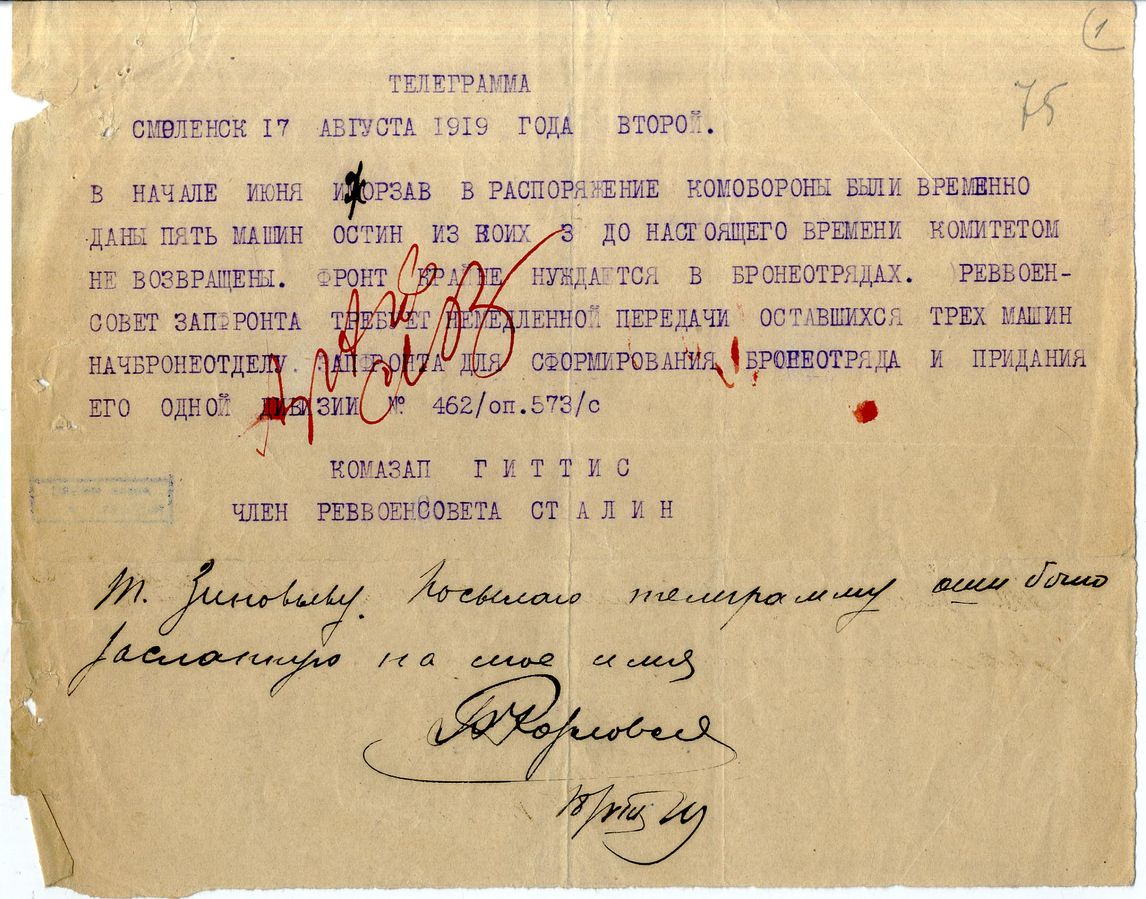 1
75
ТЕЛЕГРАММА
СМОЛЕНСК 17 АВГУСТА 1919 ГОДА ВТОРОЙ.
В НАЧАЛЕ ИЮНЯ ИЖОРЗАВ В РАСПОРЯЖЕНИЕ КОМОБОРОНЫ БЫЛИ ВРЕМЕННО
ДАНЫ ПЯТЬ МАШИН ОСТИН ИЗ КОИХ 3 ДО НАСТОЯЩЕГО ВРЕМЕНИ КОМИТЕТОМ
НЕ ВОЗВРАЩЕНЫ. ФРОНТ КРАЙНЕ НУЖДАЕТСЯ В БРОНЕОТРЯДАХ. РЕВВОЕН-
СОВЕТ ЗАПФРОНТА ТРЕБУЕТ НЕМЕДЛЕННОЙ ПЕРЕДАЧИ ОСТАВШИХСЯ ТРЕХ МАШИН
НАЧБРОНЕОТДЕЛУ ЗАПФРОНТА ДЛЯ СФОРМИРОВАНИЯ БРОНЕОТРЯДА И ПРИДАНИЯ
ЕГО ОДНОЙ ДИВИЗИИ № 462/оп.573/с
КОМАЗАП ГИТТИС
ЧЛЕН РЕВВОЕНСОВЕТА СТАЛИН
т. Зиновьеву. Посылаю телеграмму
на мое имя